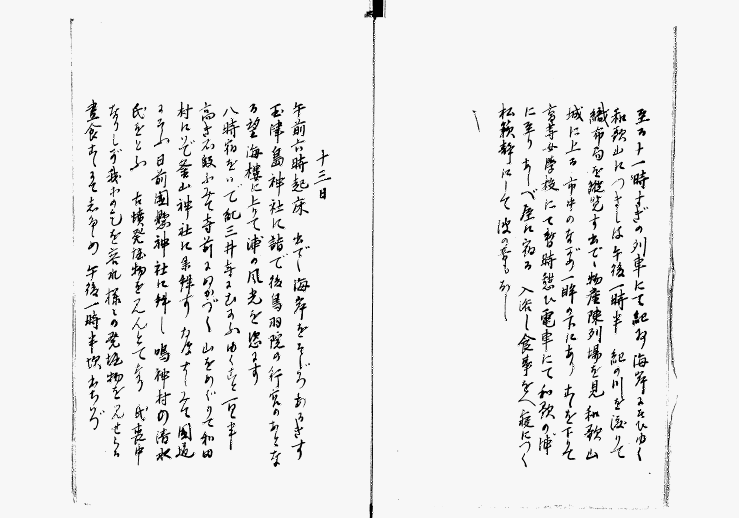 至る十一時すぎの列車にて紀州海岸にそひゆく
和歌山につきしは午後一時半 紀の川を渡りて
織布局を縦覧す 出でゝ物産陳列場を見 和歌山
城に上る 市中の 一眸の下にあり 下りて
高等女学校にて暫時憩ひ電車にて和歌の浦
に至り あしべ屋に宿る 入浴し食事をへ寝につく
松籟静にして 波の音もなし
十三日
午前六時起床 出でゝ海岸をそゞろあるきす
玉津島神社に詣で後鳥羽院の行宮のあとな
る望海楼に上りて浦の風光を恣にす
八時宿をいで紀三井寺にむかふ ゆくこと一里半
高き石段ふみて寺前にぬかづく 山をめぐりて和田
村にいで竈山神社に参拝す 国道
にそふ 日前国懸神社に拝し 鳴神村の清水
氏をとふ 古墳発掘物を見んとてなり 氏喪中
なりしが 乞を容れ様々の発掘物を見せらる
昼食 したゝめ 午後一時半